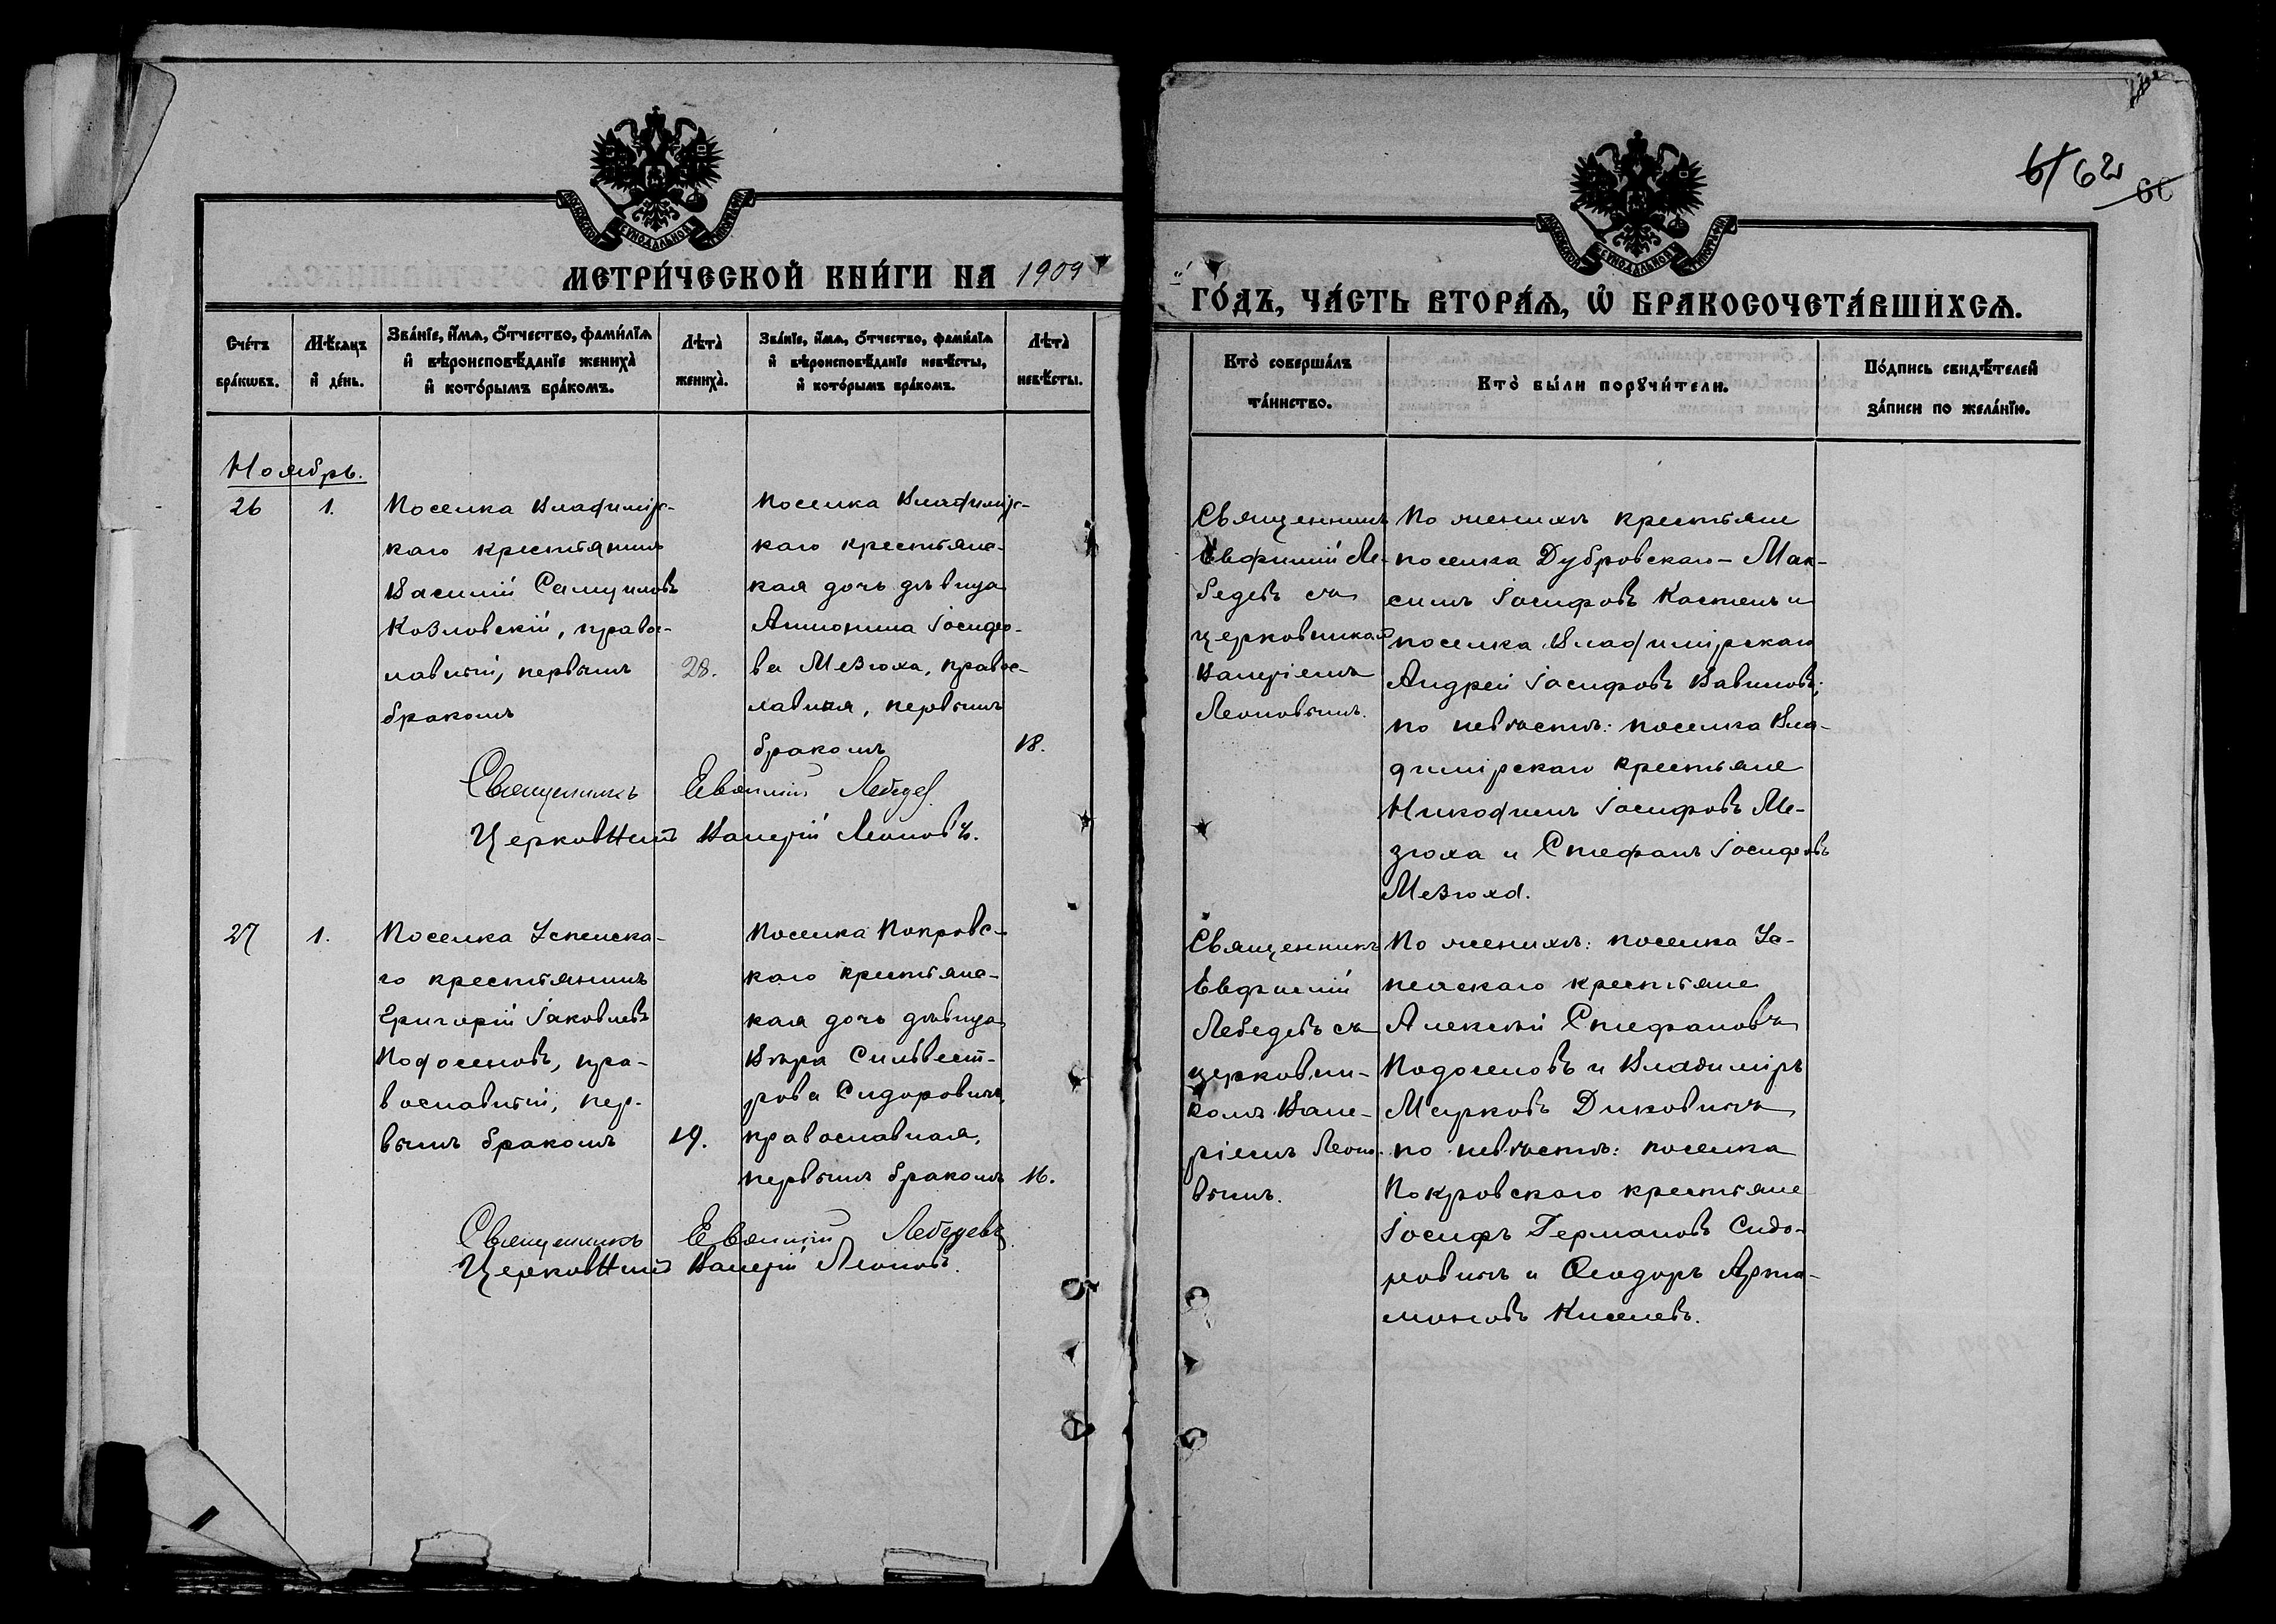 61 62
60
МЕТРИ́ЧЕСКОЙ КНИ́ГИ НА 1909
ГО́ДЪ, ЧА́СТЬ ВТОРА́Ѧ, Ѿ БРАКОСОЧЕТА́ВШИХСѦ.
Сче́тъ бра́кωвъ.
Мѣ́сѧцъ и҆ де́нь.
Зва́нїе, и҆́мѧ, ѻ҆́тчество, фами́лїѧ
и҆ вѣроисповѣ́данїе жениха̀
и҆ кото́рымъ бра́комъ.
Лѣта̀ жениха̀.
Зва́нїе, и҆́мѧ, ѻ҆́тчество, фами́лїѧ
и҆ вѣроисповѣ́данїе невѣ́сты,
и҆ кото́рымъ бра́комъ.
Лѣта̀ невѣ́сты.
Кто̀ соверша́лъ та́инство.
Кто̀ бы́ли порꙋчи́тели.
По́дпись свидѣ́телей за́писи по жела́нїю.
Ноябрь.
26
1.
Поселка Владимірс-
каго крестьянинъ
Василій Самуиловъ
Козловскій, правос-
лавный, первымъ
бракомъ
28.
Поселка Владимірс-
каго крестьянс-
кая дочь дѣвица
Антонина Іосифо-
ва Мезюха, правос-
лавная, первымъ
бракомъ
18.
Священникъ Евѳимій Лебедев
Церковникъ Валерій Леоновъ.
Священникъ
Евфимій Ле-
бедевъ съ
церковникомъ
Валеріемъ
Леоновымъ.
По женихѣ крестьяне
поселка Дубровскаго - Мак-
симъ Іосифовъ Костень и
поселка Владимірскаго
Андрей Іосифовъ Вавиловъ;
по невѣстѣ: поселка Вла-
димірскаго крестьяне
Никодимъ Іосифовъ Ме-
зюха и Стефанъ Іосифовъ
Мезюха.
27
1.
Поселка Успенска-
го крестьянинъ
Григорій Іаковлевъ
Подосеновъ, пра-
вославный, пер-
вымъ бракомъ
19.
Поселка Покровс-
каго крестьянс-
кая дочь дѣвица
Вѣра Сильвест-
рова Сидоровичъ,
православная,
первымъ бракомъ
16.
Священникъ Евѳимій Лебедевъ
Церковникъ Валерій Леоновъ.
Священникъ
Евфимій
Лебедевъ съ
церковни-
комъ Вале-
ріемъ Леоно-
вымъ.
По женихѣ: поселка Ус-
пенскаго крестьяне
Алексѣй Стефановъ
Подосеновъ и Владиміръ
Марковъ Диковичъ
по невѣстѣ: поселка
Покровскаго крестьяне
Іосифъ Германовъ Сидо-
ровичъ и Ѳеодоръ Арта-
моновъ Киселевъ.